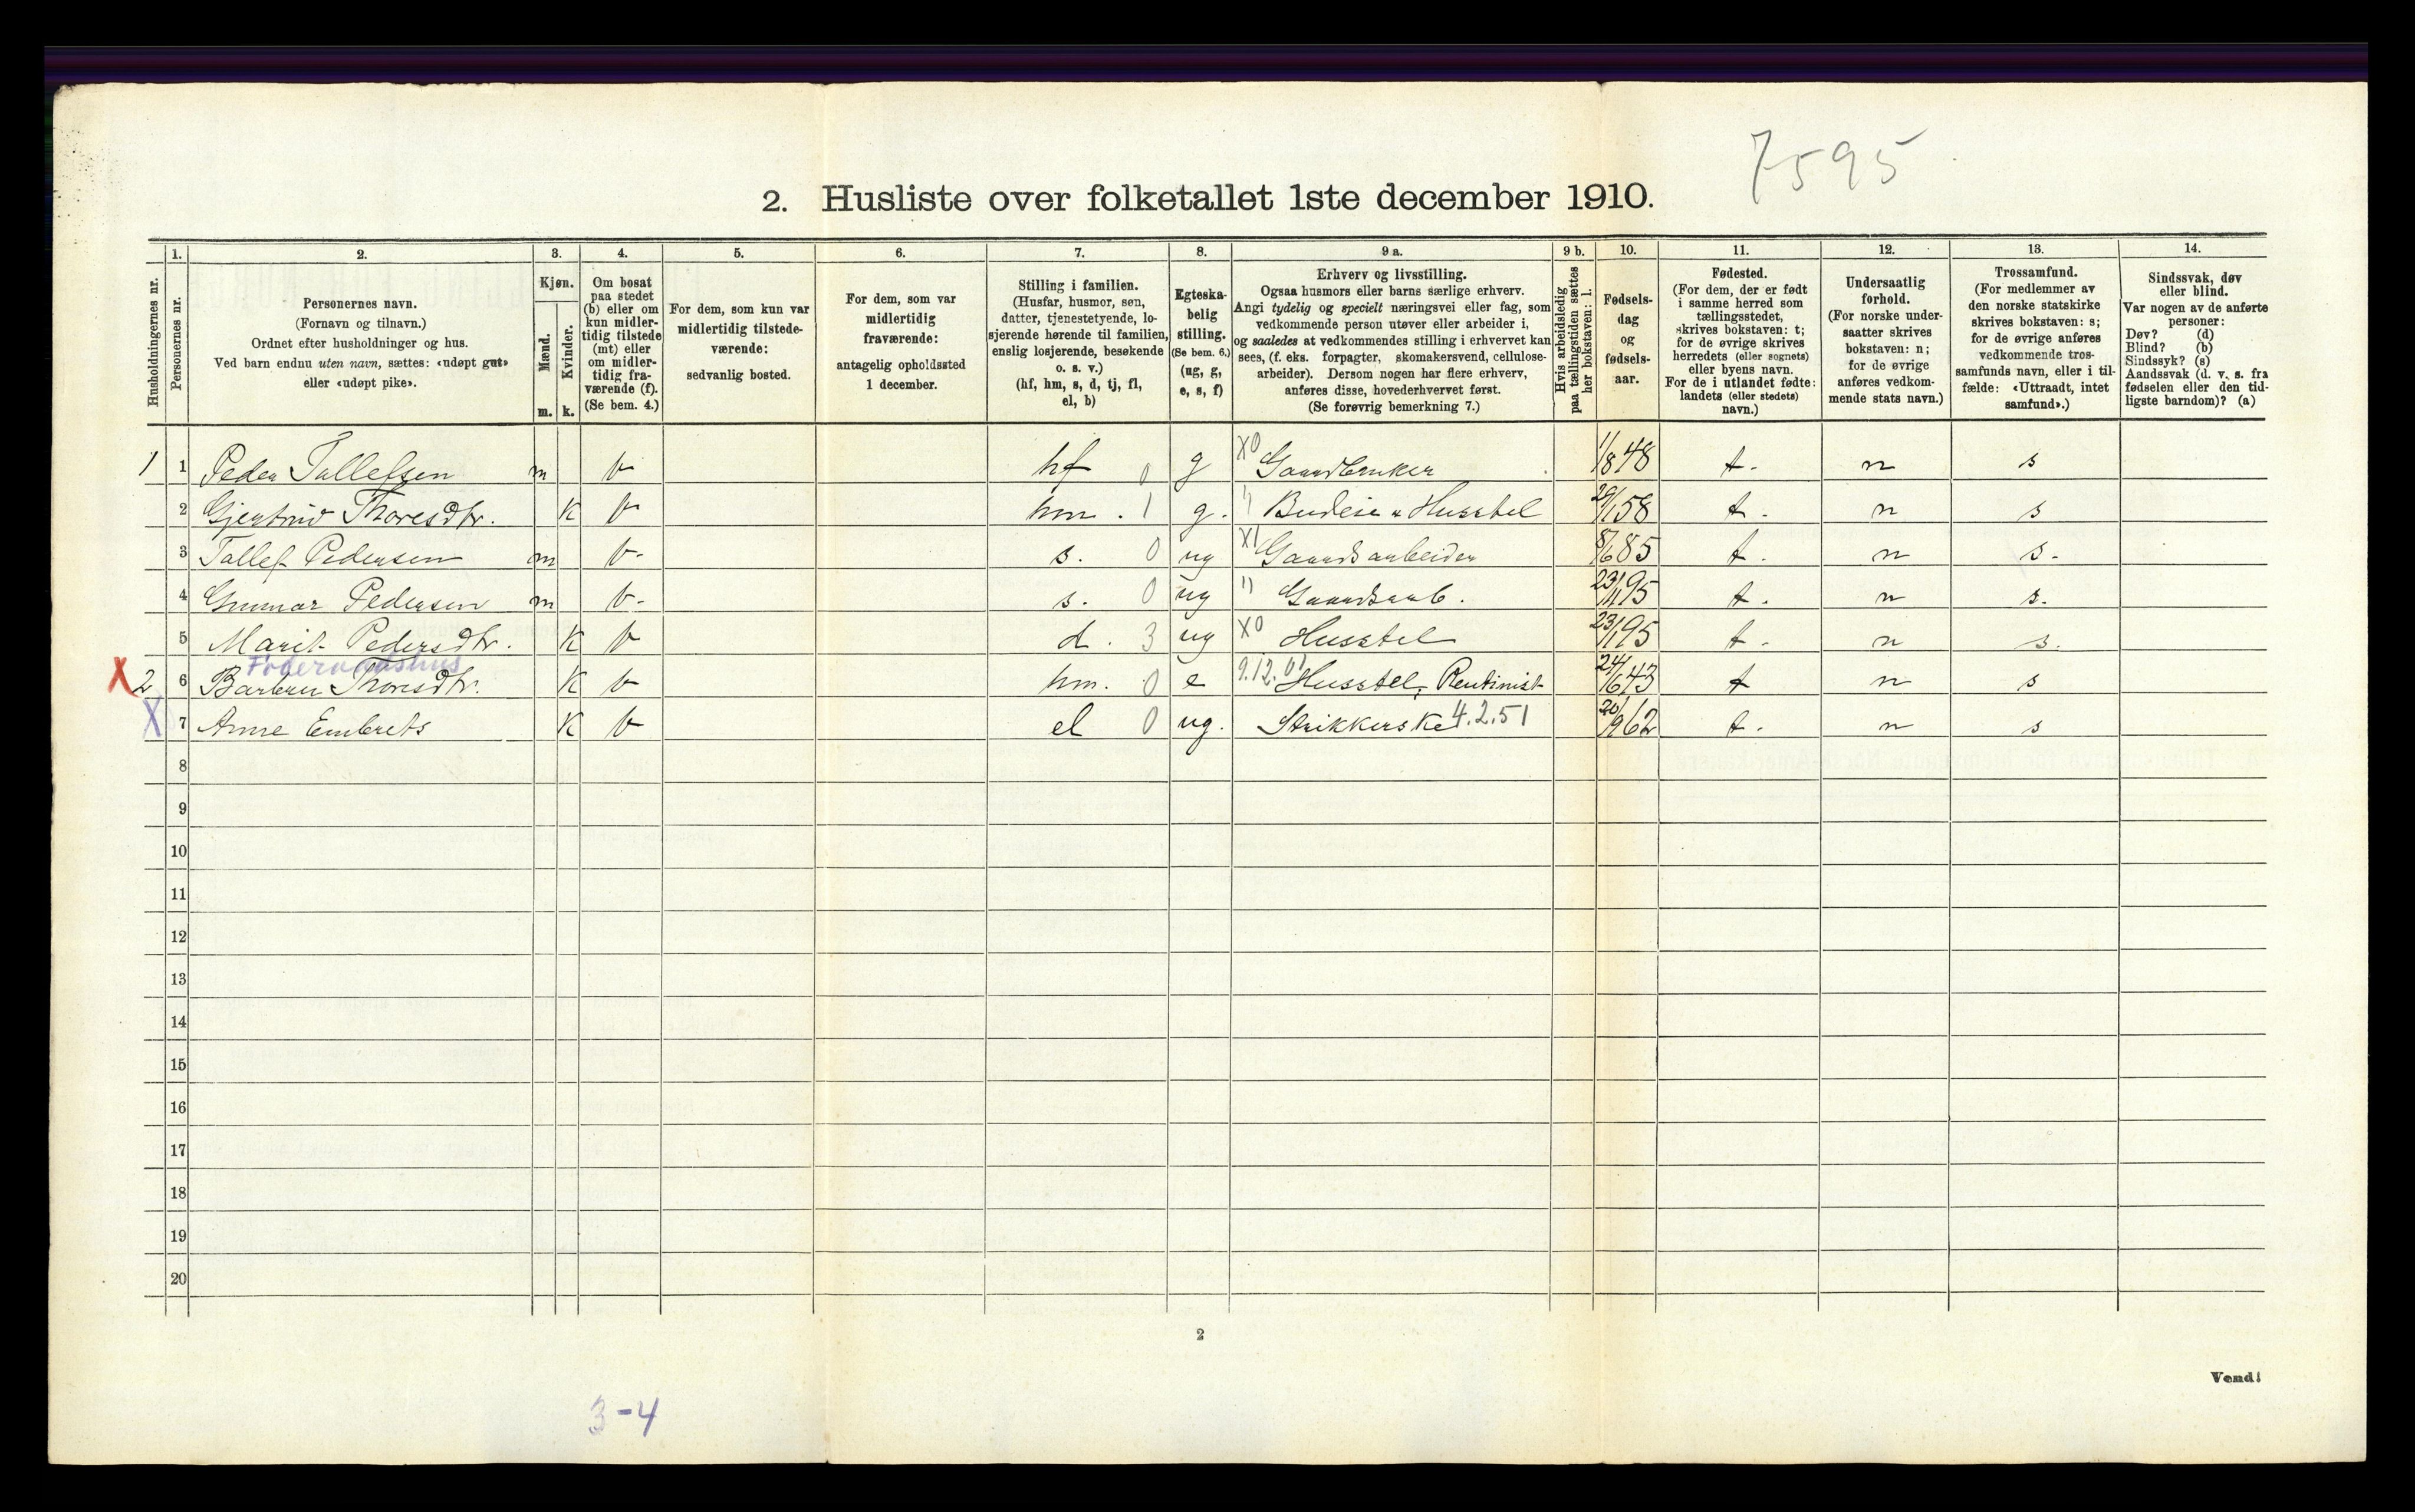 7595
2. Husliste over folketallet 1ste december 1910.
Husholdningernes nr.
1.
Personernes nr.
2.
Personernes navn.
(Fornavn og tilnavn.)
Ordnet efter husholdninger og hus.
Ved barn endnu uten navn, sættes: «udøpt gut»
eller «udøpt pike».
3.
Kjøn.
Mænd.
m.
Kvinder.
k.
4.
Om bosat
paa stedet
(b) eller om
kun midler-
tidig tilstede
(mt) eller
om midler-
tidig fra-
værende (f).
(Se bem. 4.)
5.
For dem, som kun var
midlertidig tilstede-
værende:
sedvanlig bosted.
6.
For dem, som var
midlertidig
fraværende:
antagelig opholdssted
1 december.
7.
Stilling i familien.
(Husfar, husmor, søn,
datter, tjenestetyende, lo-
sjerende hørende til familien,
enslig losjerende, besøkende
o. s. v.)
(hf, hm, s, d, tj, fl,
el, b)
8.
Egteska-
belig
stilling.
(Se bem. 6.)
(ug, g,
e, s, f)
9 a.
Erhverv og livsstilling.
Ogsaa husmors eller barns særlige erhverv.
Angi tydelig og specielt næringsvei eller fag, som
vedkommende person utøver eller arbeider i,
og saaledes at vedkommendes stilling i erhvervet kan
sees, (f. eks. forpagter, skomakersvend, cellulose-
arbeider). Dersom nogen har flere erhverv,
anføres disse, hovederhvervet først.
(Se forøvrig bemerkning 7.)
9 b.
Hvis arbeidsledig
paa tællingstiden sættes
her bokstaven: l.
10.
Fødsels-
dag
og
fødsels-
aar.
11.
Fødested.
(For dem, der er født
i samme herred som
tællingsstedet,
skrives bokstaven: t;
for de øvrige skrives
herredets (eller sognets)
eller byens navn.
For de i utlandet fødte:
landets (eller stedets)
navn.)
12.
Undersaatlig
forhold.
(For norske under-
saatter skrives
bokstaven: n;
for de øvrige
anføres vedkom-
mende stats navn.)
13.
Trossamfund.
(For medlemmer av
den norske statskirke
skrives bokstaven: s;
for de øvrige anføres
vedkommende tros-
samfunds navn, eller i til-
fælde: «Uttraadt, intet
samfund».)
14.
Sindssvak, døv
eller blind.
Var nogen av de anførte
personer:
Døv? (d)
Blind? (b)
Sindssyk? (s)
Aandssvak (d. v. s. fra
fødselen eller den tid-
ligste barndom)? (a)
1 1 Peder Tollefsen m b hf 0 g X0 Gaardbruker 1/8 48 t. n s
2 Gjertrud Thoresdtr. K b hm. 1 g. " Budeie & Husstel 29/1 58 t. n s
3 Tollef Pedersen m b s. 0 ug X1 Gaardsarbeider 8/6 85 t. n s.
4 Gunnar Pedersen m b s. 0 ug " Gaardsarb. 23/11 95 t. n s.
5 Marit Pedersdtr. K b d. 3 ug X0 Husstel 23/11 95 t. n s.
Föderaadshus
X 2 6 Barbru Thoresdtr. K b hm. 0 e 9.12.01 Husstel, Rentinist 24/6 43 t n s
X 7 Anne Embrets K b el 0 ug. Strikkerske 4.2.51 20/9 62 t. n s
8
9
10
11
12
13
14
15
16
17
18
19
20
2
Vend!
3-4